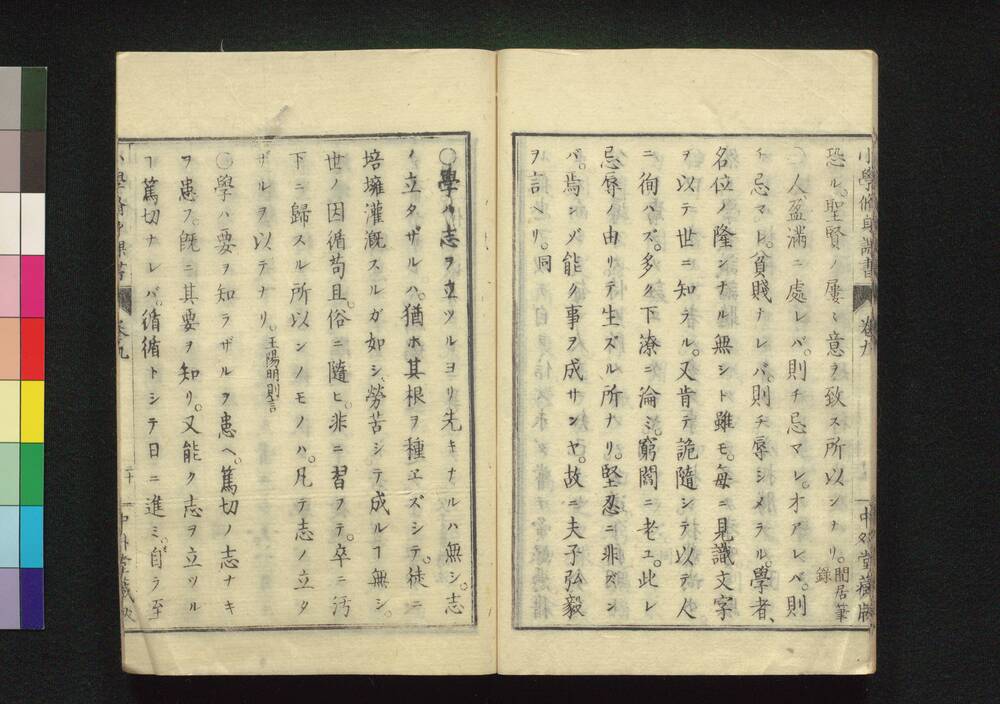 小學脩身課書 卷九 中外堂藏版
恐ル。聖賢ノ屢〻意ヲ致ス所以ンナリ。閒居筆錄
〇人盈滿ニ處レバ。則チ忌マレ。才アレバ。則
チ忌マレ。貧賤ナレバ。則チ辱シメラル。學者、
名位ノ隆ンナル無シト雖モ。每ニ見識文字
ヲ以テ世ニ知ラル。又肯テ詭隨シテ以テ人
ニ徇ハズ。多ク下潦ニ淪ミ。窮閻ニ老ユ。此レ
忌辱ノ由リテ生ズル所ナリ。堅忍ニ非ズン
バ。焉ンゾ能ク事ヲ成サンヤ。故ニ夫子弘毅
ヲ言ヘリ。同
〇學ハ志ヲ立ツルヨリ先キナルハ無シ。志
ノ立タザルハ。猶ホ其根ヲ種エズシテ。徒ニ
培擁灌漑スルガ如シ。勞苦シテ成ルヿ無シ。
世ノ因循苟且。俗ニ隨ヒ。非ニ習フテ。卒ニ汚
下ニ歸スル所以ンノモノハ。凡テ志ノ立タ
ザルヲ以テナリ。王陽明則言
〇學ハ要ヲ知ラザルヲ患ヘ。篤切ノ志ナキ
ヲ患フ。旣ニ其要ヲ知リ。又能ク志ヲ立ツル
ヿ篤切ナレバ。循循トシテ日ニ進ミ。自ラ至
卷九 二十 中外堂藏版